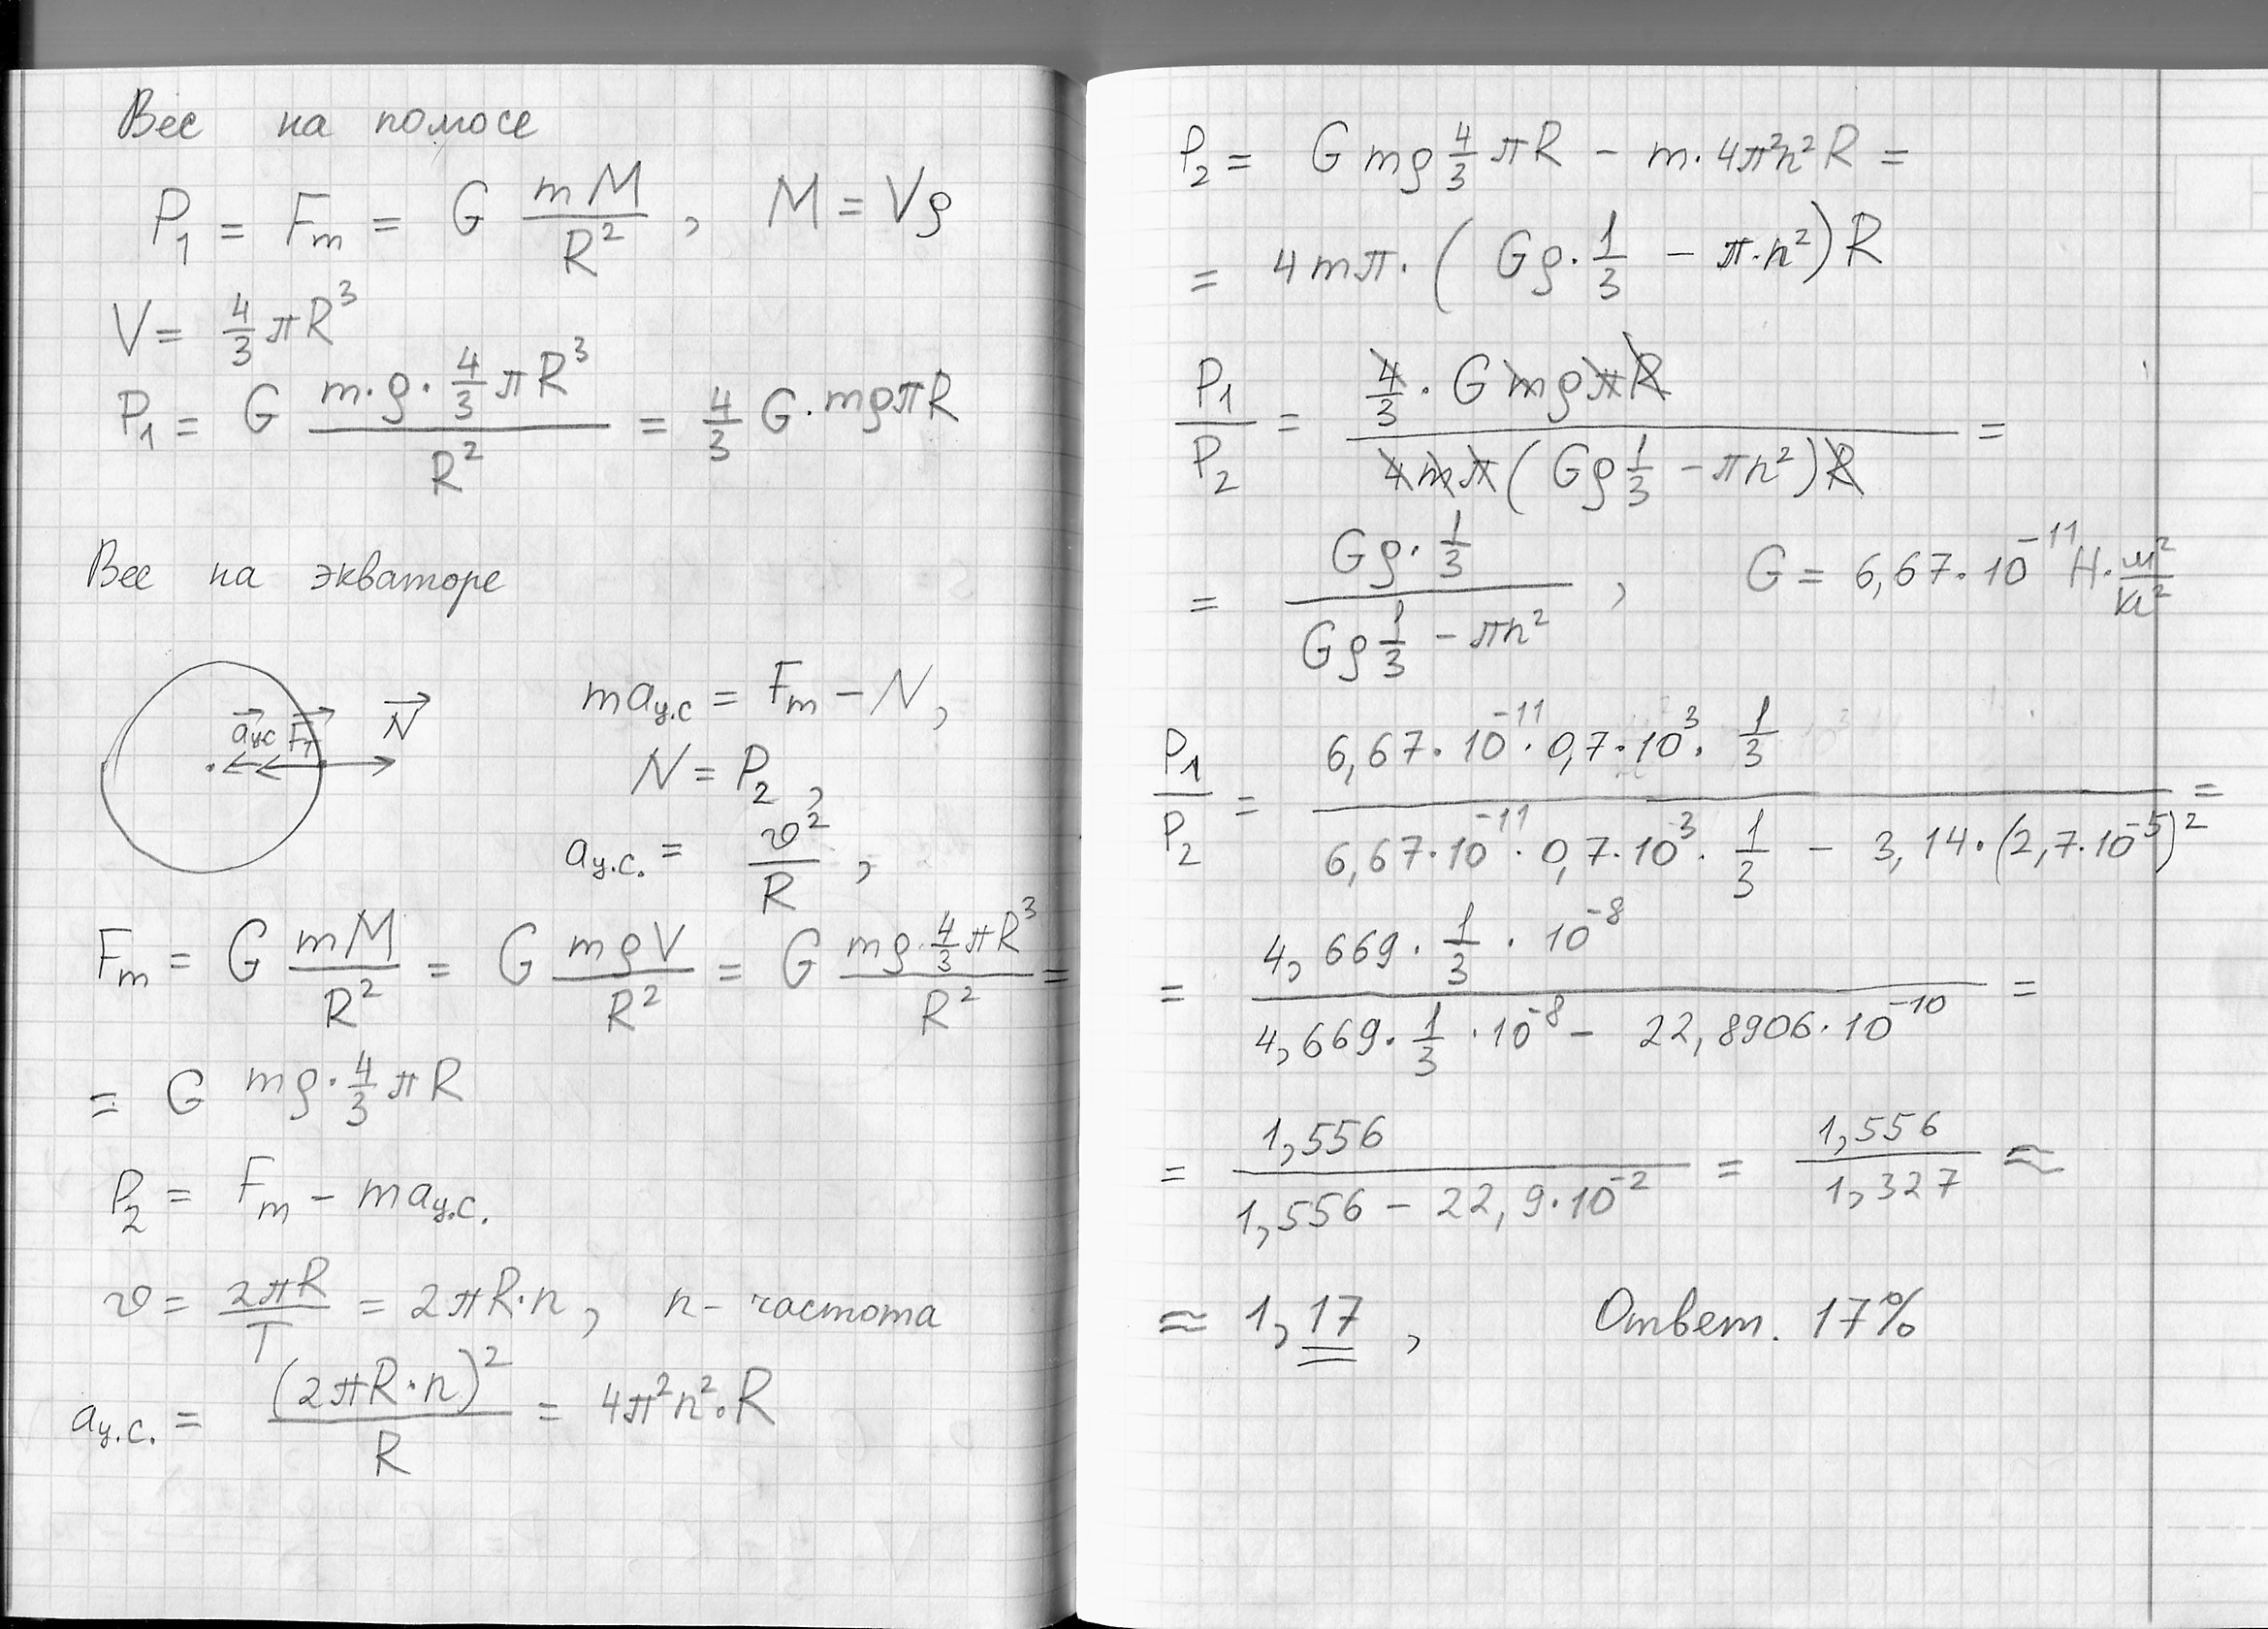 Вес на полюсе
P₁ = Fт = G mM/R², M = Vρ
V = 4/3 πR³
P₁ = G (m·ρ·4/3 πR³)/R² = 4/3 G·mρπR
Вес на экваторе
a⃗ц.с F⃗т N⃗
maц.с = Fт − N,
N = P₂,
aц.с. = v²/R,
Fт = G mM/R² = G mρV/R² = G (mρ·4/3 πR³)/R² =
= G mρ·4/3 πR
P₂ = Fт − maц.с.
v = 2πR/T = 2πR·n, n - частота
aц.с. = (2πR·n)²/R = 4π²n²·R
P₂ = G mρ 4/3 πR − m·4π²n²R =
= 4mπ·(Gρ·1/3 − π·n²)R
P₁/P₂ = (4/3·G mρπR)/(4mπ(Gρ 1/3 − πn²)R) =
= (Gρ·1/3)/(Gρ 1/3 − πn²), G = 6,67·10⁻¹¹ Н·м²/кг²
P₁/P₂ = (6,67·10⁻¹¹·0,7·10³·1/3)/(6,67·10⁻¹¹·0,7·10³·1/3 − 3,14·(2,7·10⁻⁵)²) =
= (4,669·1/3·10⁻⁸)/(4,669·1/3·10⁻⁸ − 22,8906·10⁻¹⁰) =
= 1,556/(1,556 − 22,9·10⁻²) = 1,556/1,327 ≈
≈ 1,17, Ответ. 17%